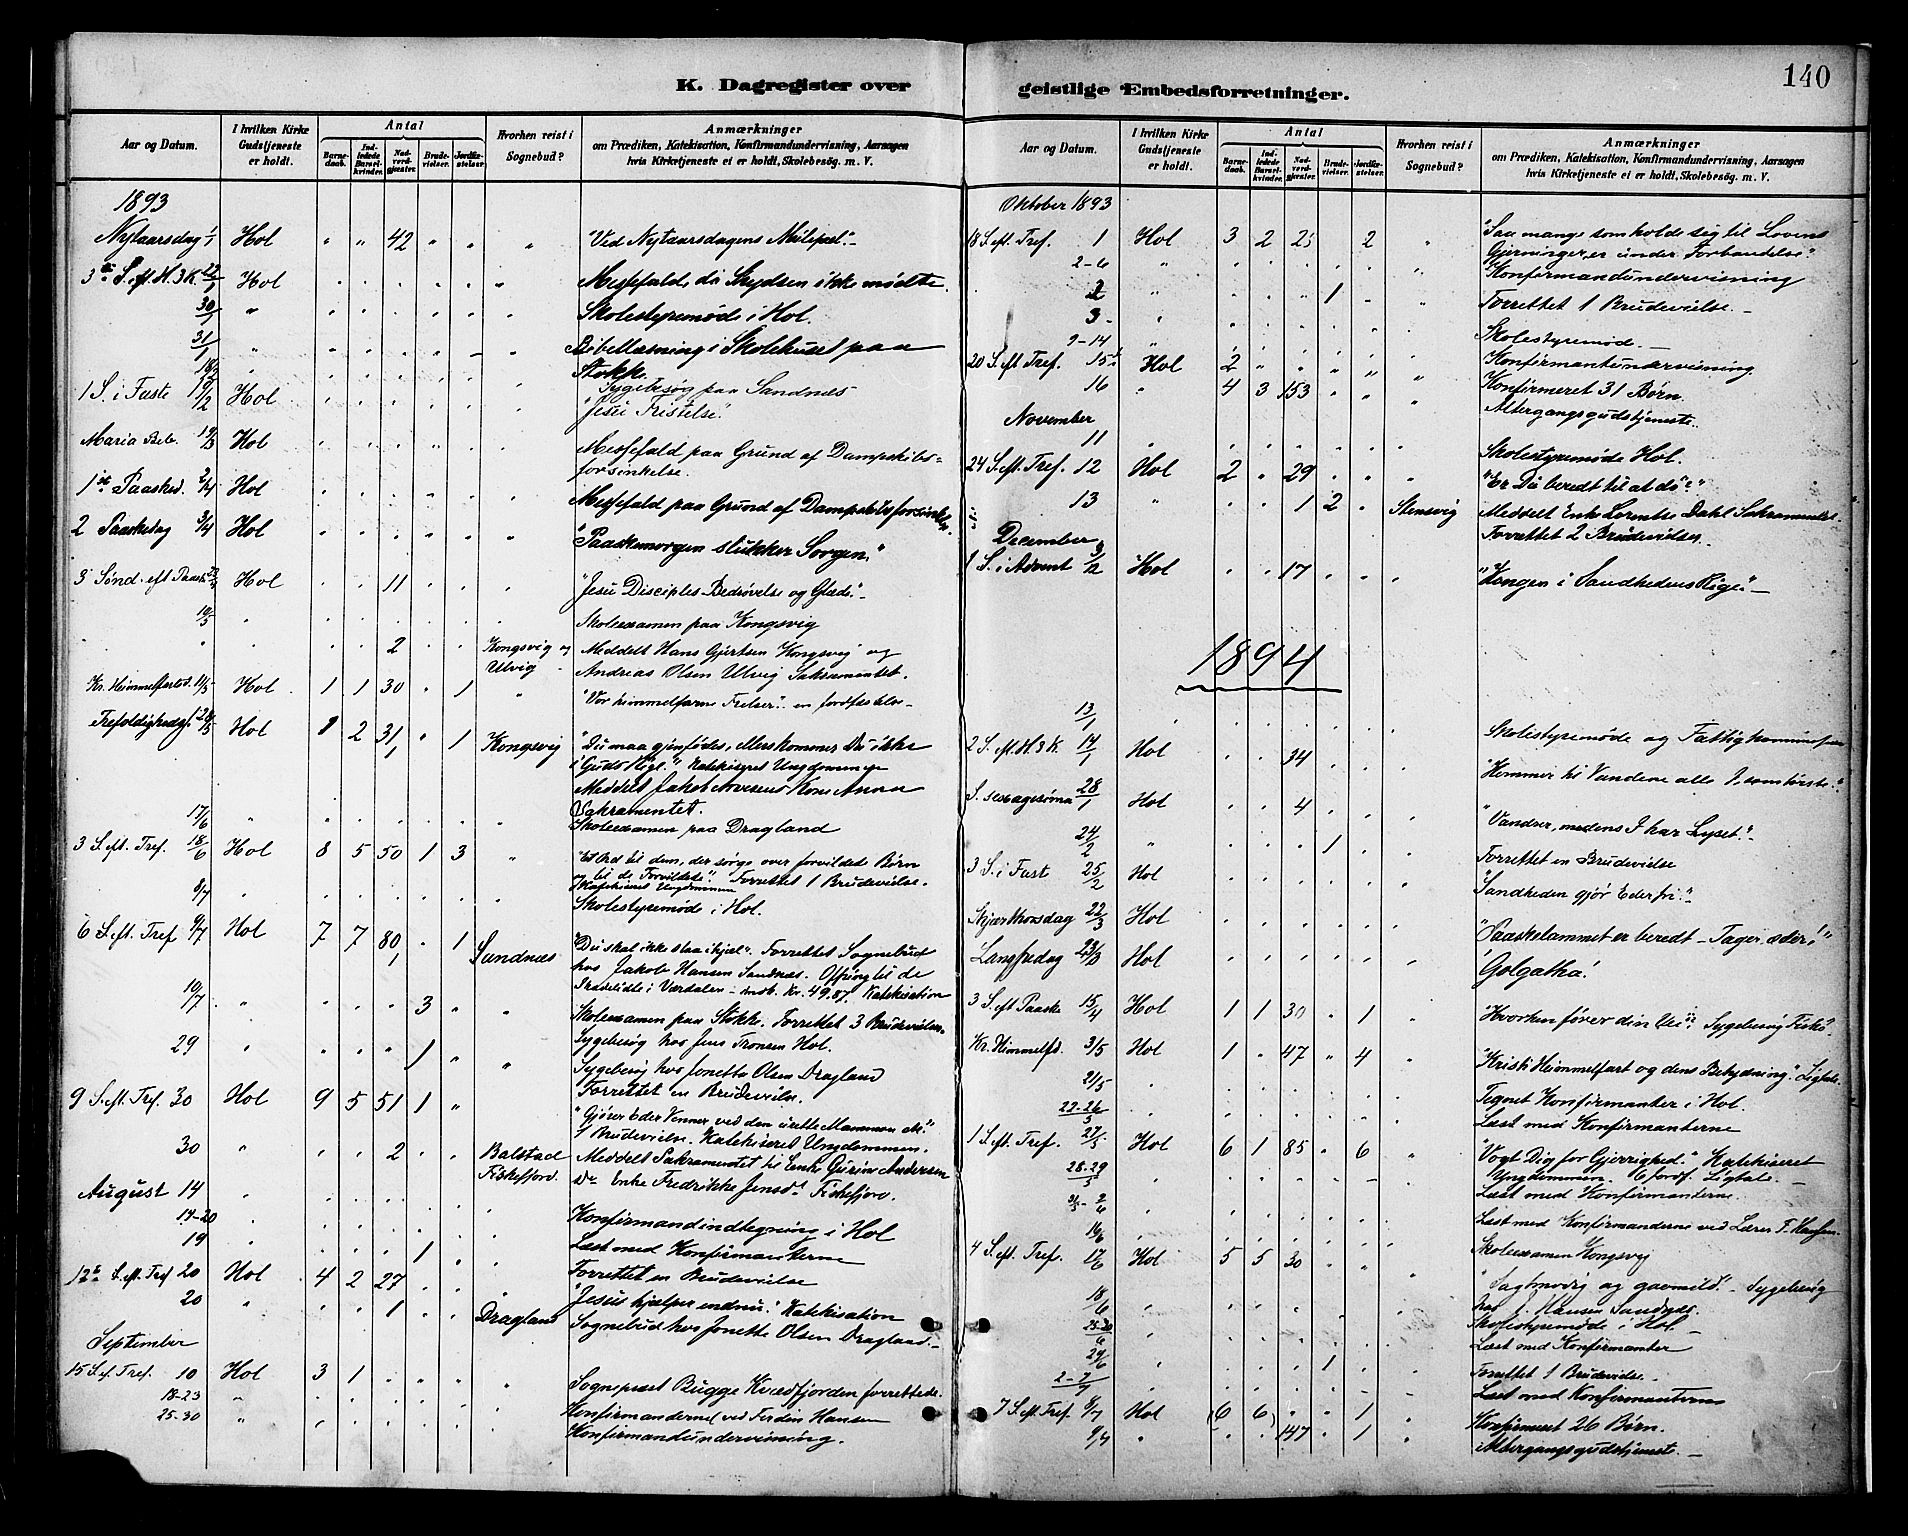 K. Dagregister over
Aar og Datum.
I hvilken Kirke Gudstjeneste er holdt.
Antal
Barnedaab. Indledede Barselkvinder. Nadverdgjester. Brudevielser. Jordfæstelser.
Hvorhen reist i Sognebud?
Anmærkninger
om Prædiken, Katekisation, Konfirmandundervisning, Aarsagen
hvis Kirketjeneste ei er holdt, Skolebesøg. m. V.
1893
Nytaarsdag 1/1 Hol " " 42 " " " "Ved Nytaarsdagens Milepæl."
3die S. eft. H. 3 K. 22/1 Hol Messefald, da Skydsen ikke mødte.
30/1 " Skolestyremøde i Hol.
31/1 " Bibellæsning i Skolehuset paa
Stokke.
18/2 Sygebesøg paa Sandnes
1 S. i Faste 19/2 Hol "Jesu Fristelse."
Maria Beb. 19/3 Hol Messefald paa Grund af Dampskibs-
forsinkelse.
1ste Paasked. 2/4 Hol Messefald paa Grund af
2 Paaskedag 3/4 Hol "Paaskemorgen slukker Sorgen."
3 Sønd. eft Paaske 23/4 Hol 11 "Jesu Disciples Bedrøvelse og Glæde."
10/5 " Skoleexamen paa Kongsvig
" 2 Kongsvig og Meddelt Hans Gjertsen Kongsvig og
Ulvig Andreas Olsen Ulvig Sakramentet.
Kr. Himmelfartsd. 11/5 Hol 1 1 30 " 1 " "Vor himmelfarne Frelser."
Trefoldighedsf. 28/5 Hol 1 2 31 " 1 Kongsvig "Du maa gjenfødes, ellers kommer Du ikke
1 i Guds Rige." Katekiseret Ungdommen
Meddelt Jakob Kone Anna
Sakramentet.
17/6 " Skoleexamen paa Dragland
3 S. eft. Tref. 18/6 Hol 8 5 50 1 3 " "Et Ord til dem, der sørge over forvildet Børn
og til de Forvildede". Forrettet 1 Brudevielse.
Katekiseret Ungdommen
8/7 Skolestyremøde i Hol.
6 S. eft. Tref 9/7 Hol 7 7 80 " 1 Sandnæs "Du skal ikke slaa ihjel". Forrettet Sognebud
1 hos Jakob Hansen Sandnæs. Offring til de
i Værdalen - indb. Kr. 49.87. Katekisation
10/7 " 3 " Skoleexamen paa Stokke. Forrettet 3 Brudevielser.
Sygebesøg hos Jens Tronsen Hol.
29 " 1 " Sygebesøg hos Jonette Olsen Dragland
Forrettet en Brudevielse.
9 S. eft. Tref. 30 Hol 9 5 51 1 " "Gjører Eder Venner ved den urette Mammon"
1 Brudevielse. Katekiseret Ungdommen.
30 " 2 Balstad Meddelt Sakramentet til Enke Andersen
Fiskefjord. do Enke Fredrikke Jensdt Fiskefjord.
August 14 Konfirmandindtegning i Hol
14-20 Læst med Konfirmanterne
19 1 Forrettet en Brudevielse
12te S. eft. Tref 20 Hol 4 2 27 "Jesus hjælper endnu." Katekisation
20 " 1 Dragland Sognebud hos Jonette Olsen Dragland.
September
15 S. ef. Tref. 10 Hol 3 1 Sognepræst Bugge Kvædfjorden forrettede.
18-23 " Konfirmanderne ved Ferdin Hansen
25-30 " Konfirmandundervisning.
geistlige Embedsforretninger.
140
Aar og Datum.
I hvilken Kirke Gudstjeneste er holdt.
Antal
Barnedaab. Indledede Barselkvinder. Nadverdgjester. Brudevielser. Jordfæstelser.
Hvorhen reist i Sognebud?
Anmærkninger
om Prædiken, Katekisation, Konfirmandundervisning, Aarsagen
hvis Kirketjeneste ei er holdt, Skolebesøg. m. V.
Oktober 1893
18 S. eft. Tref. 1 Hol 3 2 25 2 " "Saa mange som holde sig til Lovens
Gjerninger, er under Forbandelse"
2-6 " Konfirmandundervisning
2 " 1 Forrettet 1 Brudevielse.
3 " Skolestyremøde.
9-14 Konfirmantundervisning
20 S. eft Tref. 15 Hol 2 " Konfirmeret 31 Børn.
16 " 4 3 153 Altergangsgudstjeneste.
November
11 " Skolestyremøde Hol.
24 S. eft. Tref. 12 Hol 2 " 29 "Er Du beredt til at dø?"
13 " 1 2 Stensvig Meddelt Enke Lorentse Dahl Sakramentet.
Forrettet 2 Brudevielser
December
1 S. i Advent 3/12 Hol 17 "Kongen i Sandhedens Rige."
1894
13/1 Skolestyremøde og
2 S. eft. H. 3 K. 14/1 Hol 34 Vandene alle I, som tørste."
S. sexagesima 28/1 Hol 4 "Vandrer, medens I har Lyset."
24/2 " 1 Forrettet en Brudevielse
3 S. i Fast 25/2 Hol "Sandheden gjør Eder fri."
Skjærthorsdag 22/3 Hol "Paaskelammet er beredt - Tager, æder!"
Langfredag 23/3 Hol "Golgatha."
3 S. eft Paaske 15/4 Hol 1 1 30 " 1 "Hvorhen fører din Vei". Sygebesøg
Kr. Himmelfd. 3/5 Hol 1 " 47 " 4 "Kristi Himmelfart og dens Betydning". Ligtale
21/5 Tegnet Konfirmanter i Hol.
22-26/5 Læst med Konfirmanterne
1 S. eft. Tref. 27/5 Hol 6 1 85 " 6 "Vogt Dig for Gjerrighed." Katekiseret
Ungdommen. 6 Jordf. Ligtale.
28-29/5 Læst med Konfirmanterne.
31/5 - 2/6 Læst med Konfirmanderne ved Lærer F. Hansen.
16/6 Skoleexamen Kongsvig
4 S. eft. Tref. 17/6 Hol 5 5 30 "Sagtmodig og gavmild". Sygebesøg
hos J. Hansen Sandnæs.
18/6 Skolestyremøde i Hol
25-30/6 Læst med Konfirmanter
29/6 " 1 Forrettet 1 Brudevielse.
2-7/7 Læst med Konfirmanterne
7 S. eft Tref. 8/7 Hol (6 6) 1 Konfirmeret 26 Børn.
9/7 147 1 Altergangsgudstjenest.